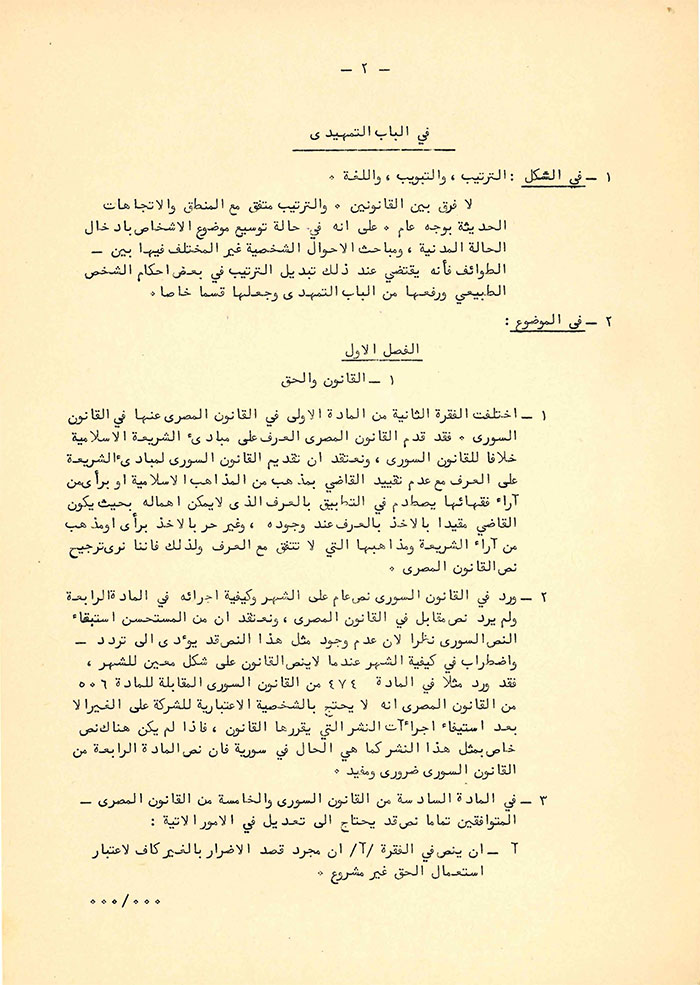 — ٢ —
في الباب التمهيدى
١ — في الشكل : الترتيب ، والتبويب ، واللغة ٠
لا فرق بين القانونين ٠ والترتيب متفق مع المنطق والاتجاهات
الحديثة بوجه عام ٠ على انه في حالة توسيع موضوع الاشخاص بادخال
الحالة المدنية ، ومباحث الاحوال الشخصية غير المختلف فيها بين —
الطوائف فأنه يقتضي عند ذلك تبديل الترتيب في بعض احكام الشخص
الطبيعي ورفعها من الباب التمهدى وجعلها قسما خاصا ٠
٢ — في الموضوع :
الفصل الاول
١ — القانون والحق
١ — اختلفت الفقرة الثانية من المادة الاولى في القانون المصرى عنها في القانون
السورى ٠ فقد قدم القانون المصرى العرف على مبادىٔ الشريعة الاسلامية
خلافا للقانون السورى ، ونعتقد ان تقديم القانون السورى لمبادىٔ الشريعة
على العرف مع عدم تقييد القاضي بمذهب من المذاهب الاسلامية او برأى من
آراء فقهائها يصطدم في التطبيق بالعرف الذى لايمكن اهماله بحيث يكون
القاضي مقيدا بالاخذ بالعرف عند وجوده ، وغير حر بالاخذ برأى اومذهب
من آراء الشريعة ومذاهبها التي لا تتفق مع العرف ولذلك فاننا نرى ترجيح
نص القانون المصرى ٠
٢ — ورد في القانون السورى نص عام على الشهر وكيفية اجرائه في المادة الرابعة
ولم يرد نص مقابل في القانون المصرى ، ونعتقد ان من المستحسن استبقاء
النص السورى نظرا لان عدم وجود مثل هذا النص قد يؤدى الى تردد —
واضطراب في كيفية الشهر عندما لاينص القانون على شكل معين للشهر ،
فقد ورد مثلا في المادة ٤٧٤ من القانون السورى المقابلة للمادة ٥٠٦
من القانون المصرى انه لا يحتج بالشخصية الاعتبارية للشركة على الغير الا
بعد استيفاء اجراءآت النشر التي يقررها القانون ، فاذا لم يكن هناك نص
خاص بمثل هذا النشر كما هي الحال في سورية فان نص المادة الرابعة من
القانون السورى ضرورى ومفيد ٠
٣ — في المادة السادسة من القانون السورى والخامسة من القانون المصرى —
المتوافقين تماما نص قد يحتاج الى تعديل في الامور الاتية :
آ — ان ينص في الفقرة /آ/ ان مجرد قصد الاضرار بالغير كاف لاعتبار
استعمال الحق غير مشروع ٠
٠٠٠/٠٠٠